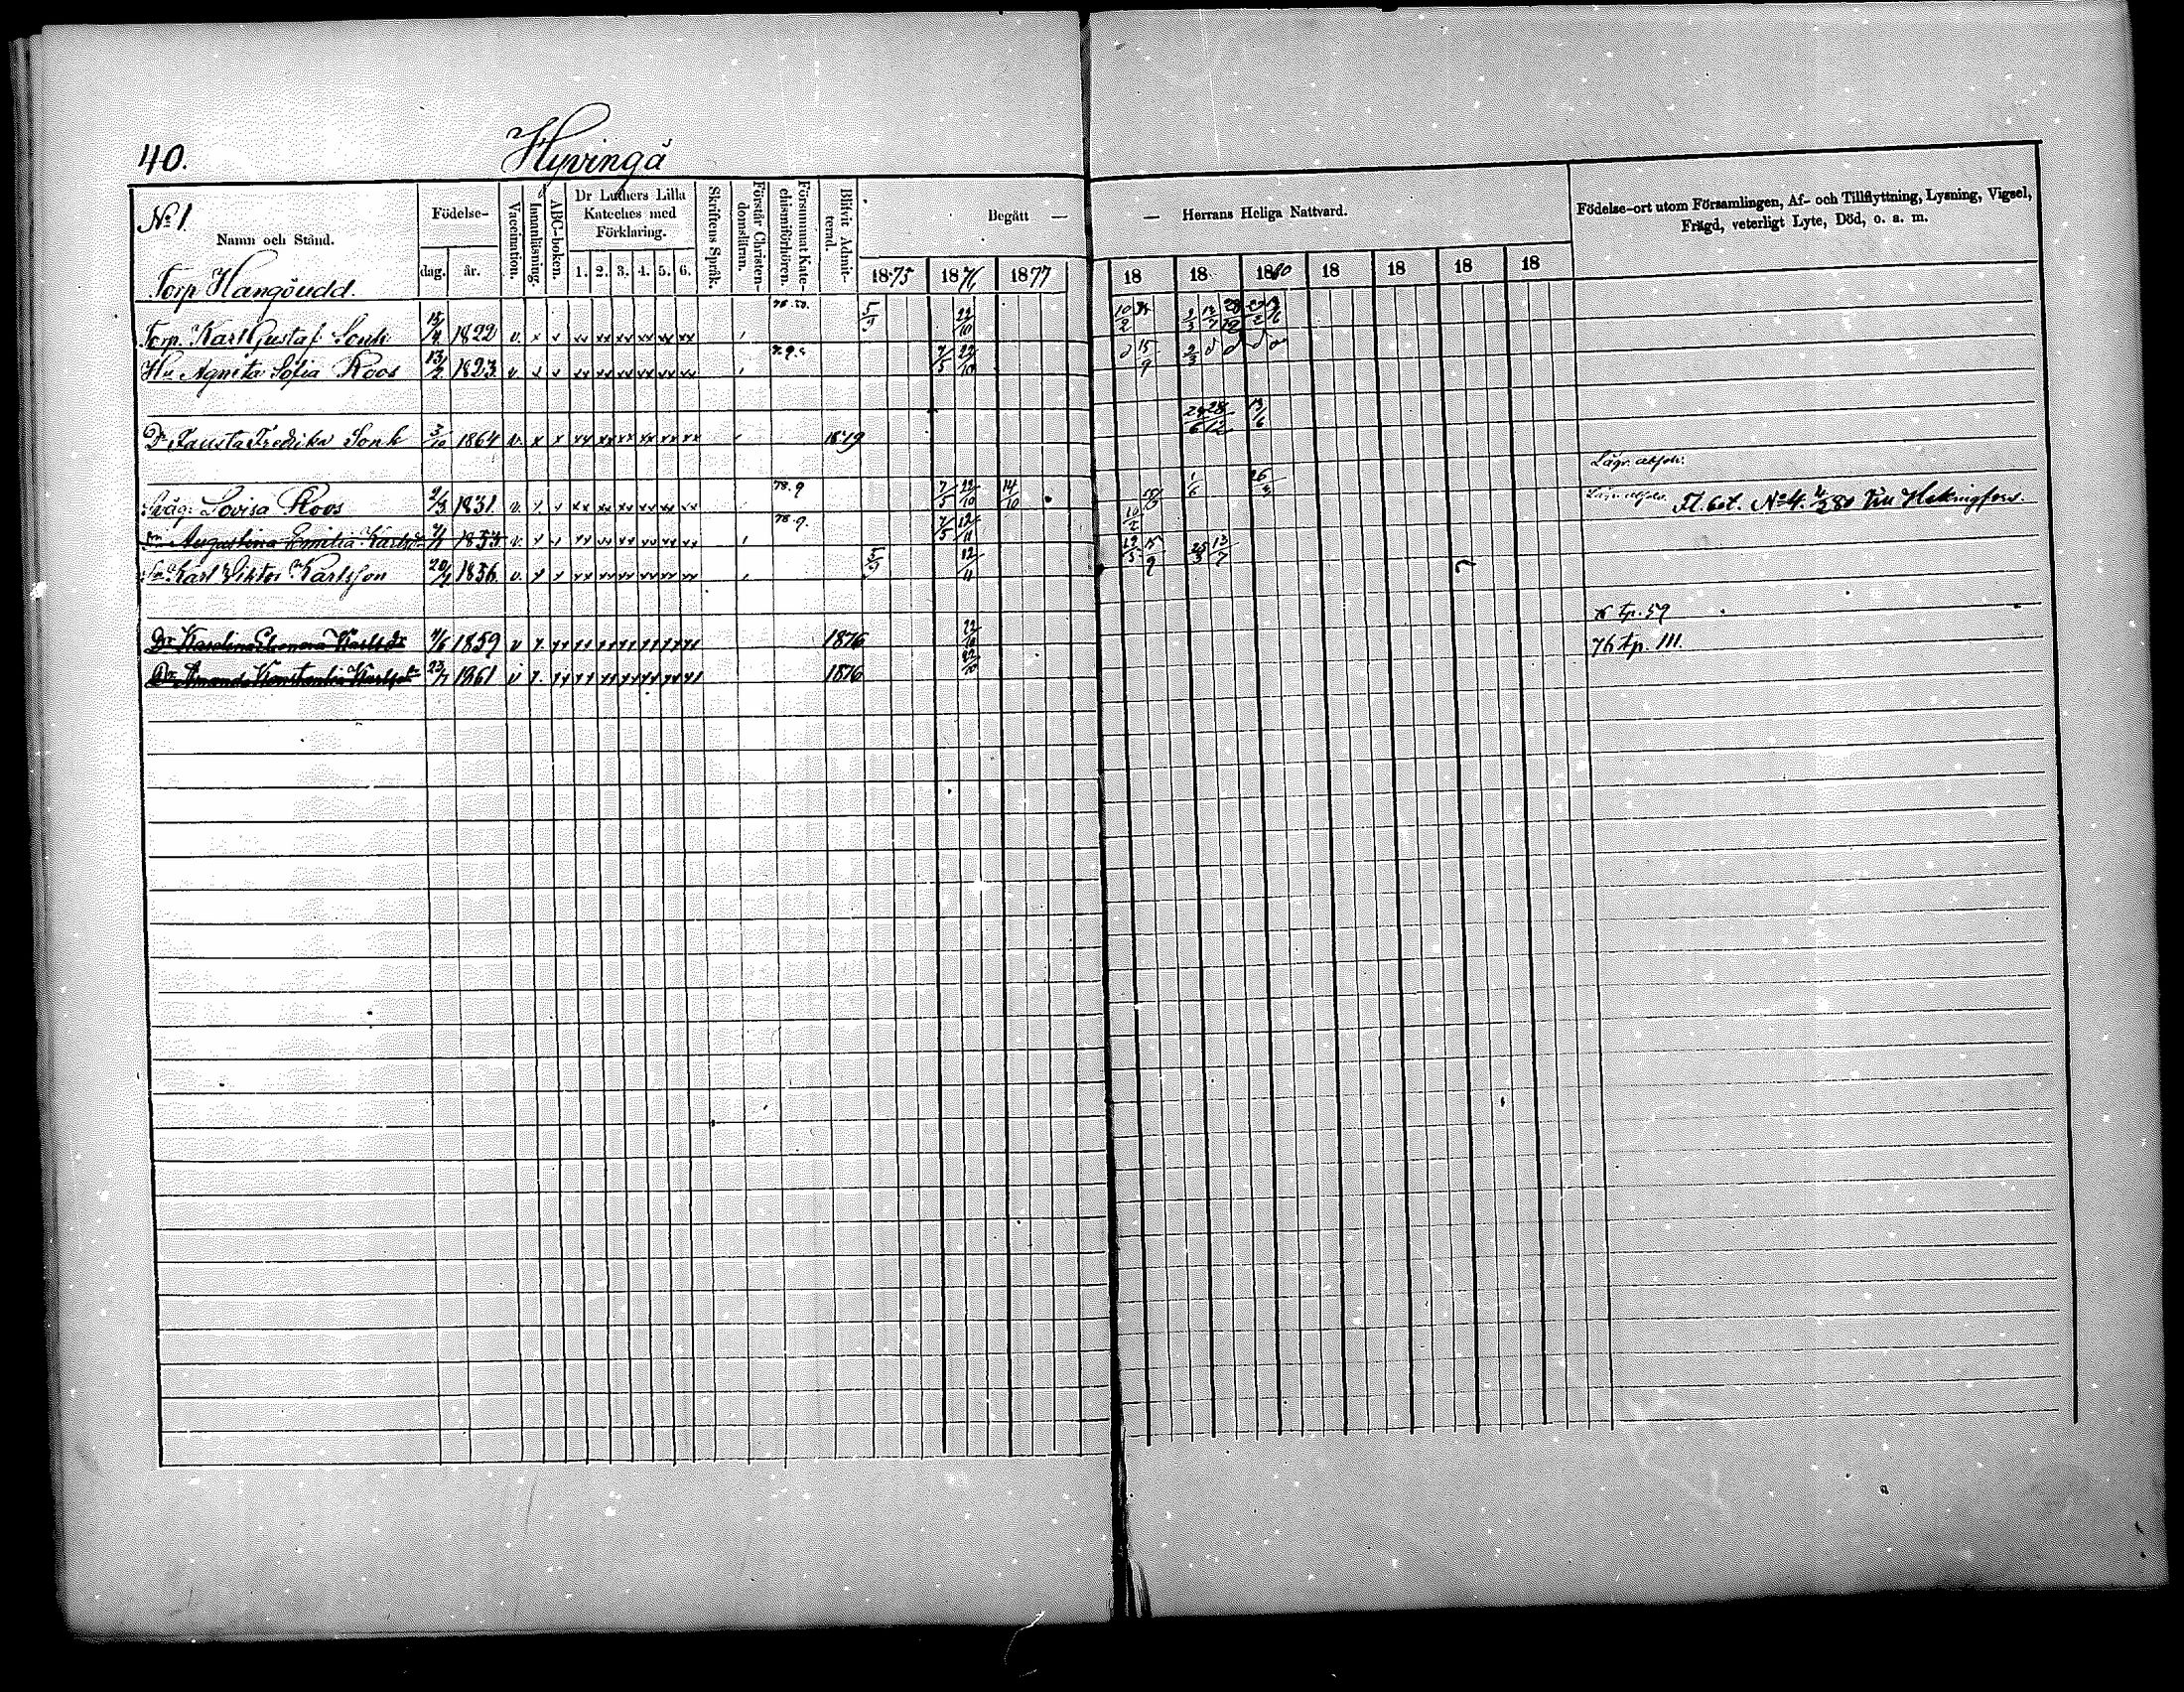 40. Hyvingä
Nº 1. Namn och Stånd.
Födelse- dag. år.
Vaccination.
Innanläsning.
ABC-boken.
Dr Luthers Lilla Kateches med Förklaring.
1. 2. 3. 4. 5. 6.
Skriftens Språk.
Förstår Christendomsläran.
Försummat Katechismiförhören.
Blifvit Admitterad.
Begått — — Herrans Heliga Nattvard.
1875 1876 1877 18 18 1880 18 18 18 18
Födelse-ort utom Församlingen, Af- och Tillflyttning, Lysning, Vigsel,
Frägd, veterligt Lyte, Död, o. a. m.
Torp Hangöudd.
Torp. Karl Gustaf Sonk 1822 v. x x xx xx xx xx xx xx 5/9 22/10
Hu Agnita Sofia Roos 13/2 1823 v. x x xx xx xx xx xx xx 7/5 22/10 15/9 2/3
Dr Fausta Fredrika Sonk 3/10 1864 v. x x xx xx xx xx xx xx 1879 13/6
Lägr. attest.
Sväg. Lovisa Roos 1831 v. x x xx xx xx xx xx xx 78. 9 7/5 22/10 14/10 1/6
Fl. bet. Nº 4. 80 till Helsingfors.
Dr Augustina Emilia Karlsdr 1853 v. x x xx xx xx xx xx xx 78. 9. 7/5 12/11 10/2
Sn Karl Viktor Karlsson 20/4 1856 v. x x xx xx xx xx xx xx 5/9 12/11 15/9 13/7
Dr Karolina Eleonora Karlsdr 1859 v x xx xx xx xx xx xx xx 1876 22/10 76 tp. 59
Dr Amanda Konstantia Karlsdr 23/7 1861 v x xx xx xx xx xx xx xx 1876 22/10 76 tp. 111.